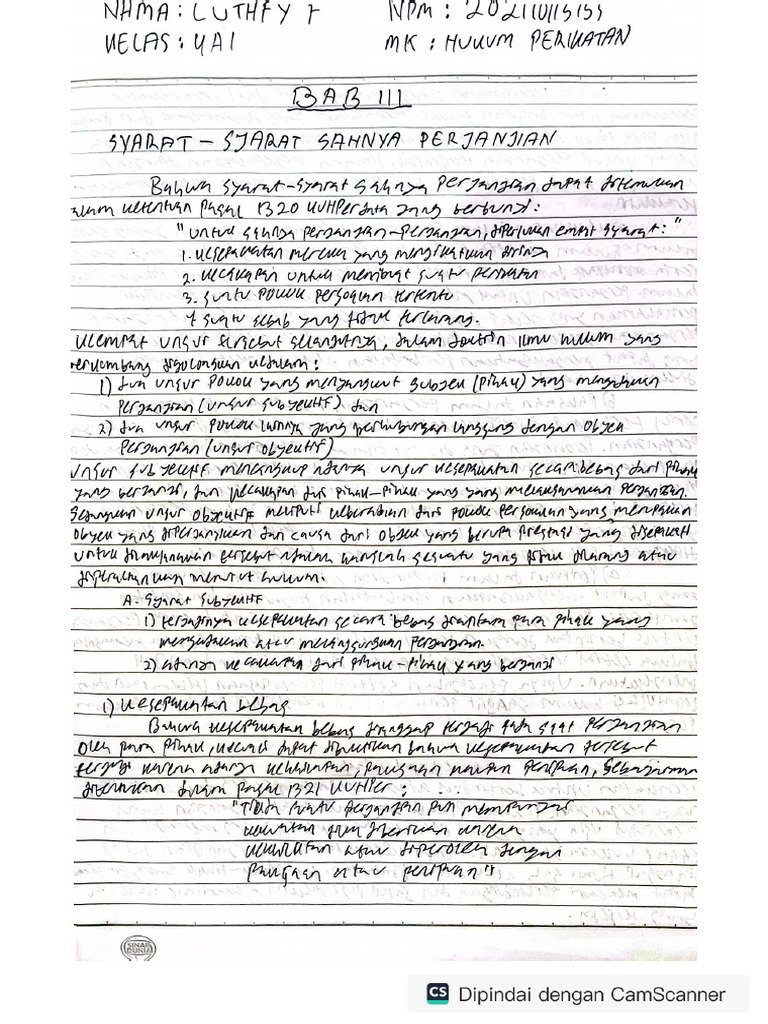 NAMA : LUTHFY F NPM : 202110115155
KELAS : 4A1 MK : HUKUM PERIKATAN
BAB III
SYARAT - SYARAT SAHNYA PERJANJIAN
Bahwa syarat-syarat sahnya perjanjian dapat ditemukan
dalam ketentuan pasal 1320 KUHPerdata yang berbunyi :
"Untuk sahnya perjanjian-perjanjian, diperlukan empat syarat : "
1. Kesepakatan mereka yang mengikatkan dirinya
2. Kecakapan untuk membuat suatu perikatan
3. suatu pokok persoalan tertentu
4 suatu sebab yang tidak terlarang.
Keempat unsur tersebut selanjutnya, dalam doktrin ilmu hukum yang
berkembang digolongkan kedalam :
1) dua unsur pokok yang menyangkut subjek (pihak) yang mengadakan
perjanjian (unsur subyektif) dan
2) dua unsur pokok lainnya yang berhubungan langsung dengan objek
perjanjian (unsur obyektif)
Unsur subyektif mencangkup adanya unsur kesepakatan secara bebas dari pihak
yang berjanji, dan kecakapan dari pihak-pihak yang yang melaksanakan perjanjian.
Sedangkan unsur objektif meliputi keberadaan dari pokok persoalan yang merupakan
obyek yang diperjanjikan dan causa dari objek yang berupa prestasi yang disepakati
untuk dilaksanakan tersebut adalah haruslah sesuatu yang tidak dilarang atau
diperkenankan menurut hukum.
A. Syarat subyektif
1) terjadinya kesepakatan secara bebas diantara para pihak yang
mengadakan atau melangsungkan perjanjian.
2) adanya kecakapan dari pihak-pihak yang berjanji
1) Kesepakatan bebas
Bahwa kesepakatan bebas dianggap terjadi pada saat perjanjian
oleh para pihak, kecuali dapat dibuktikan bahwa kesepakatan tersebut
terjadi karena adanya kekhilafan, paksaan maupun penipuan, sebagaimana
ditentukan dalam pasal 1321 KUHPer :
"Tiada suatu perjanjian pun mempunyai
kekuatan jika diberikan karena
kekhilafan atau diperoleh dengan
paksaan atau penipuan"
SINAR
DUNIA
CS Dipindai dengan CamScanner